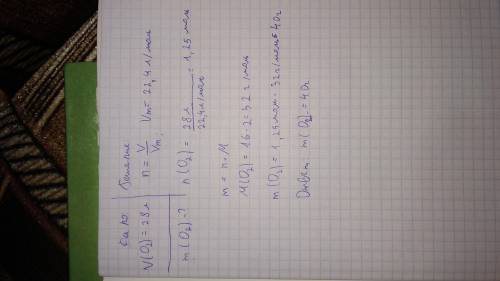 Дано
V(O₂) = 28 л
m(O₂) = ?
Решение
n = V/Vm; Vm = 22,4 л/моль
n(O₂) = 28 л / 22,4 л/моль = 1,25 моль
m = n · M
M(O₂) = 16 · 2 = 32 г/моль
m(O₂) = 1,25 моль · 32 г/моль = 40 г
Ответ m(O₂) = 40 г